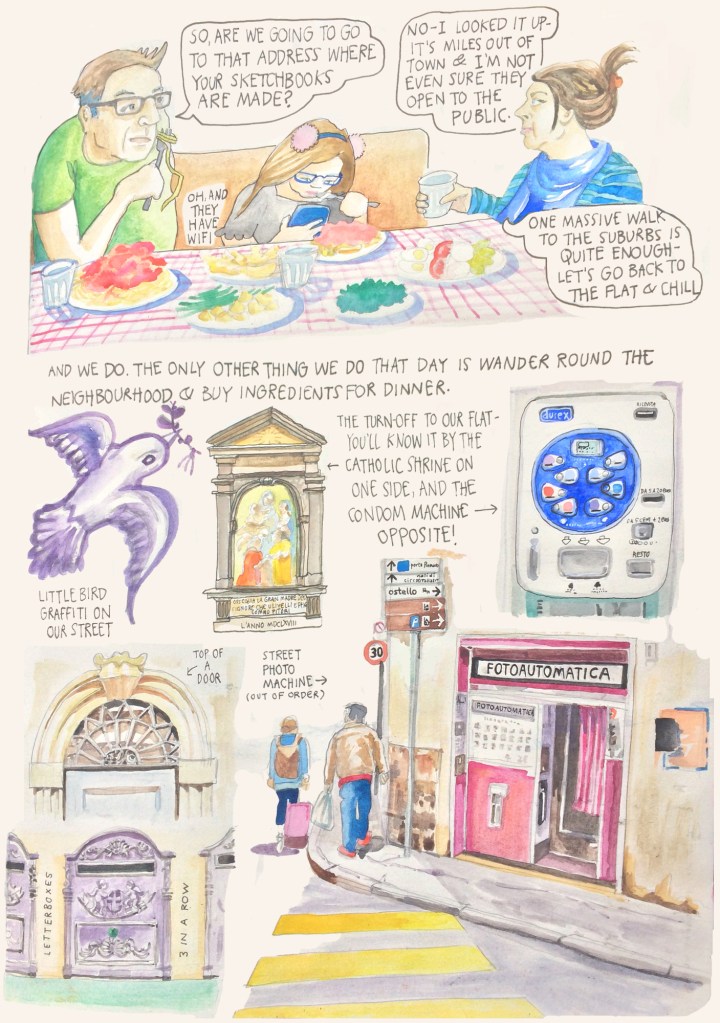 SO, ARE WE GOING TO GO
TO THAT ADDRESS WHERE
YOUR SKETCHBOOKS
ARE MADE?
NO-I LOOKED IT UP-
IT'S MILES OUT OF
TOWN & I'M NOT
EVEN SURE THEY
OPEN TO THE
PUBLIC.
OH, AND
THEY
HAVE
WIFI
ONE MASSIVE WALK
TO THE SUBURBS IS
QUITE ENOUGH-
LET'S GO BACK TO
THE FLAT & CHILL
AND WE DO. THE ONLY OTHER THING WE DO THAT DAY IS WANDER ROUND THE
NEIGHBOURHOOD & BUY INGREDIENTS FOR DINNER.
THE TURN-OFF TO OUR FLAT-
YOU'LL KNOW IT BY THE
← CATHOLIC SHRINE ON
ONE SIDE, AND THE
CONDOM MACHINE →
OPPOSITE!
durex
RESTO
LITTLE BIRD
GRAFFITI ON
OUR STREET
L'ANNO MDCLXVIII
TOP OF
A
DOOR
STREET
PHOTO
MACHINE →
(OUT OF ORDER)
ostello
P
30
FOTOAUTOMATICA
FOTOAUTOMATICA
LETTERBOXES
3 IN A ROW